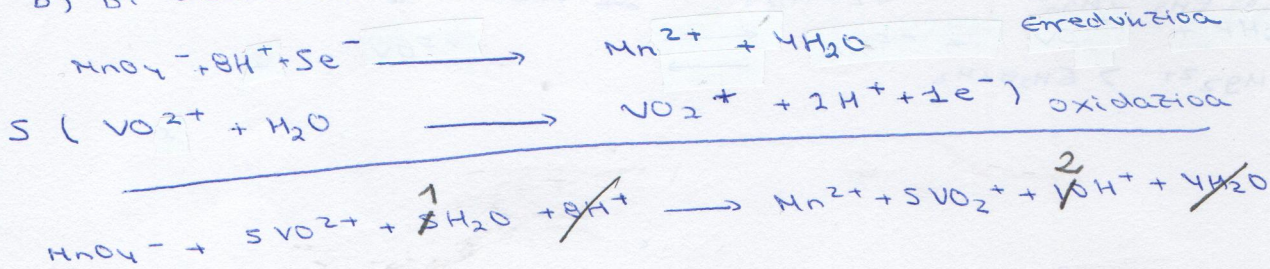 MnO4⁻ + 8H⁺ + 5e⁻ → Mn²⁺ + 4H2O Erredukzioa
5 ( VO²⁺ + H2O → VO2⁺ + 2H⁺ + 1e⁻ ) oxidazioa
1 2
MnO4⁻ + 5VO²⁺ + 5H2O + 8H⁺ → Mn²⁺ + 5VO2⁺ + 10H⁺ + 4H2O